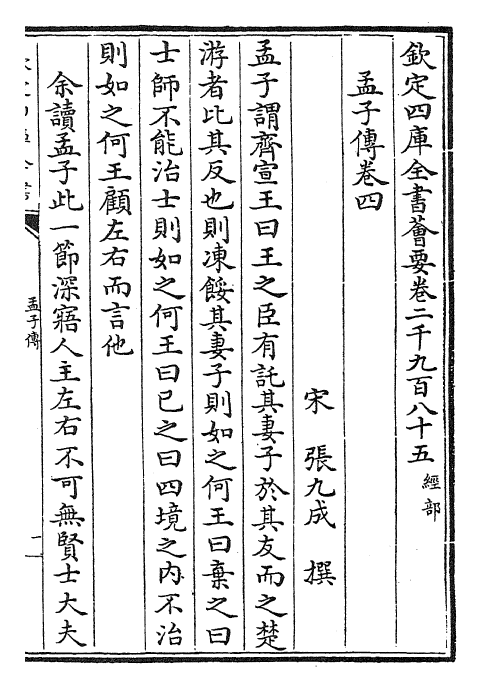 欽定四庫全書薈要卷二千九百八十五 經部
孟子傳卷四
宋 張九成 撰
孟子謂齊宣王曰王之臣有託其妻子於其友而之楚
游者比其反也則凍餒其妻子則如之何王曰棄之曰
士師不能治士則如之何王曰已之曰四境之内不治
則如之何王顧左右而言他
余讀孟子此一節深寤人主左右不可無賢士大夫
孟子傳